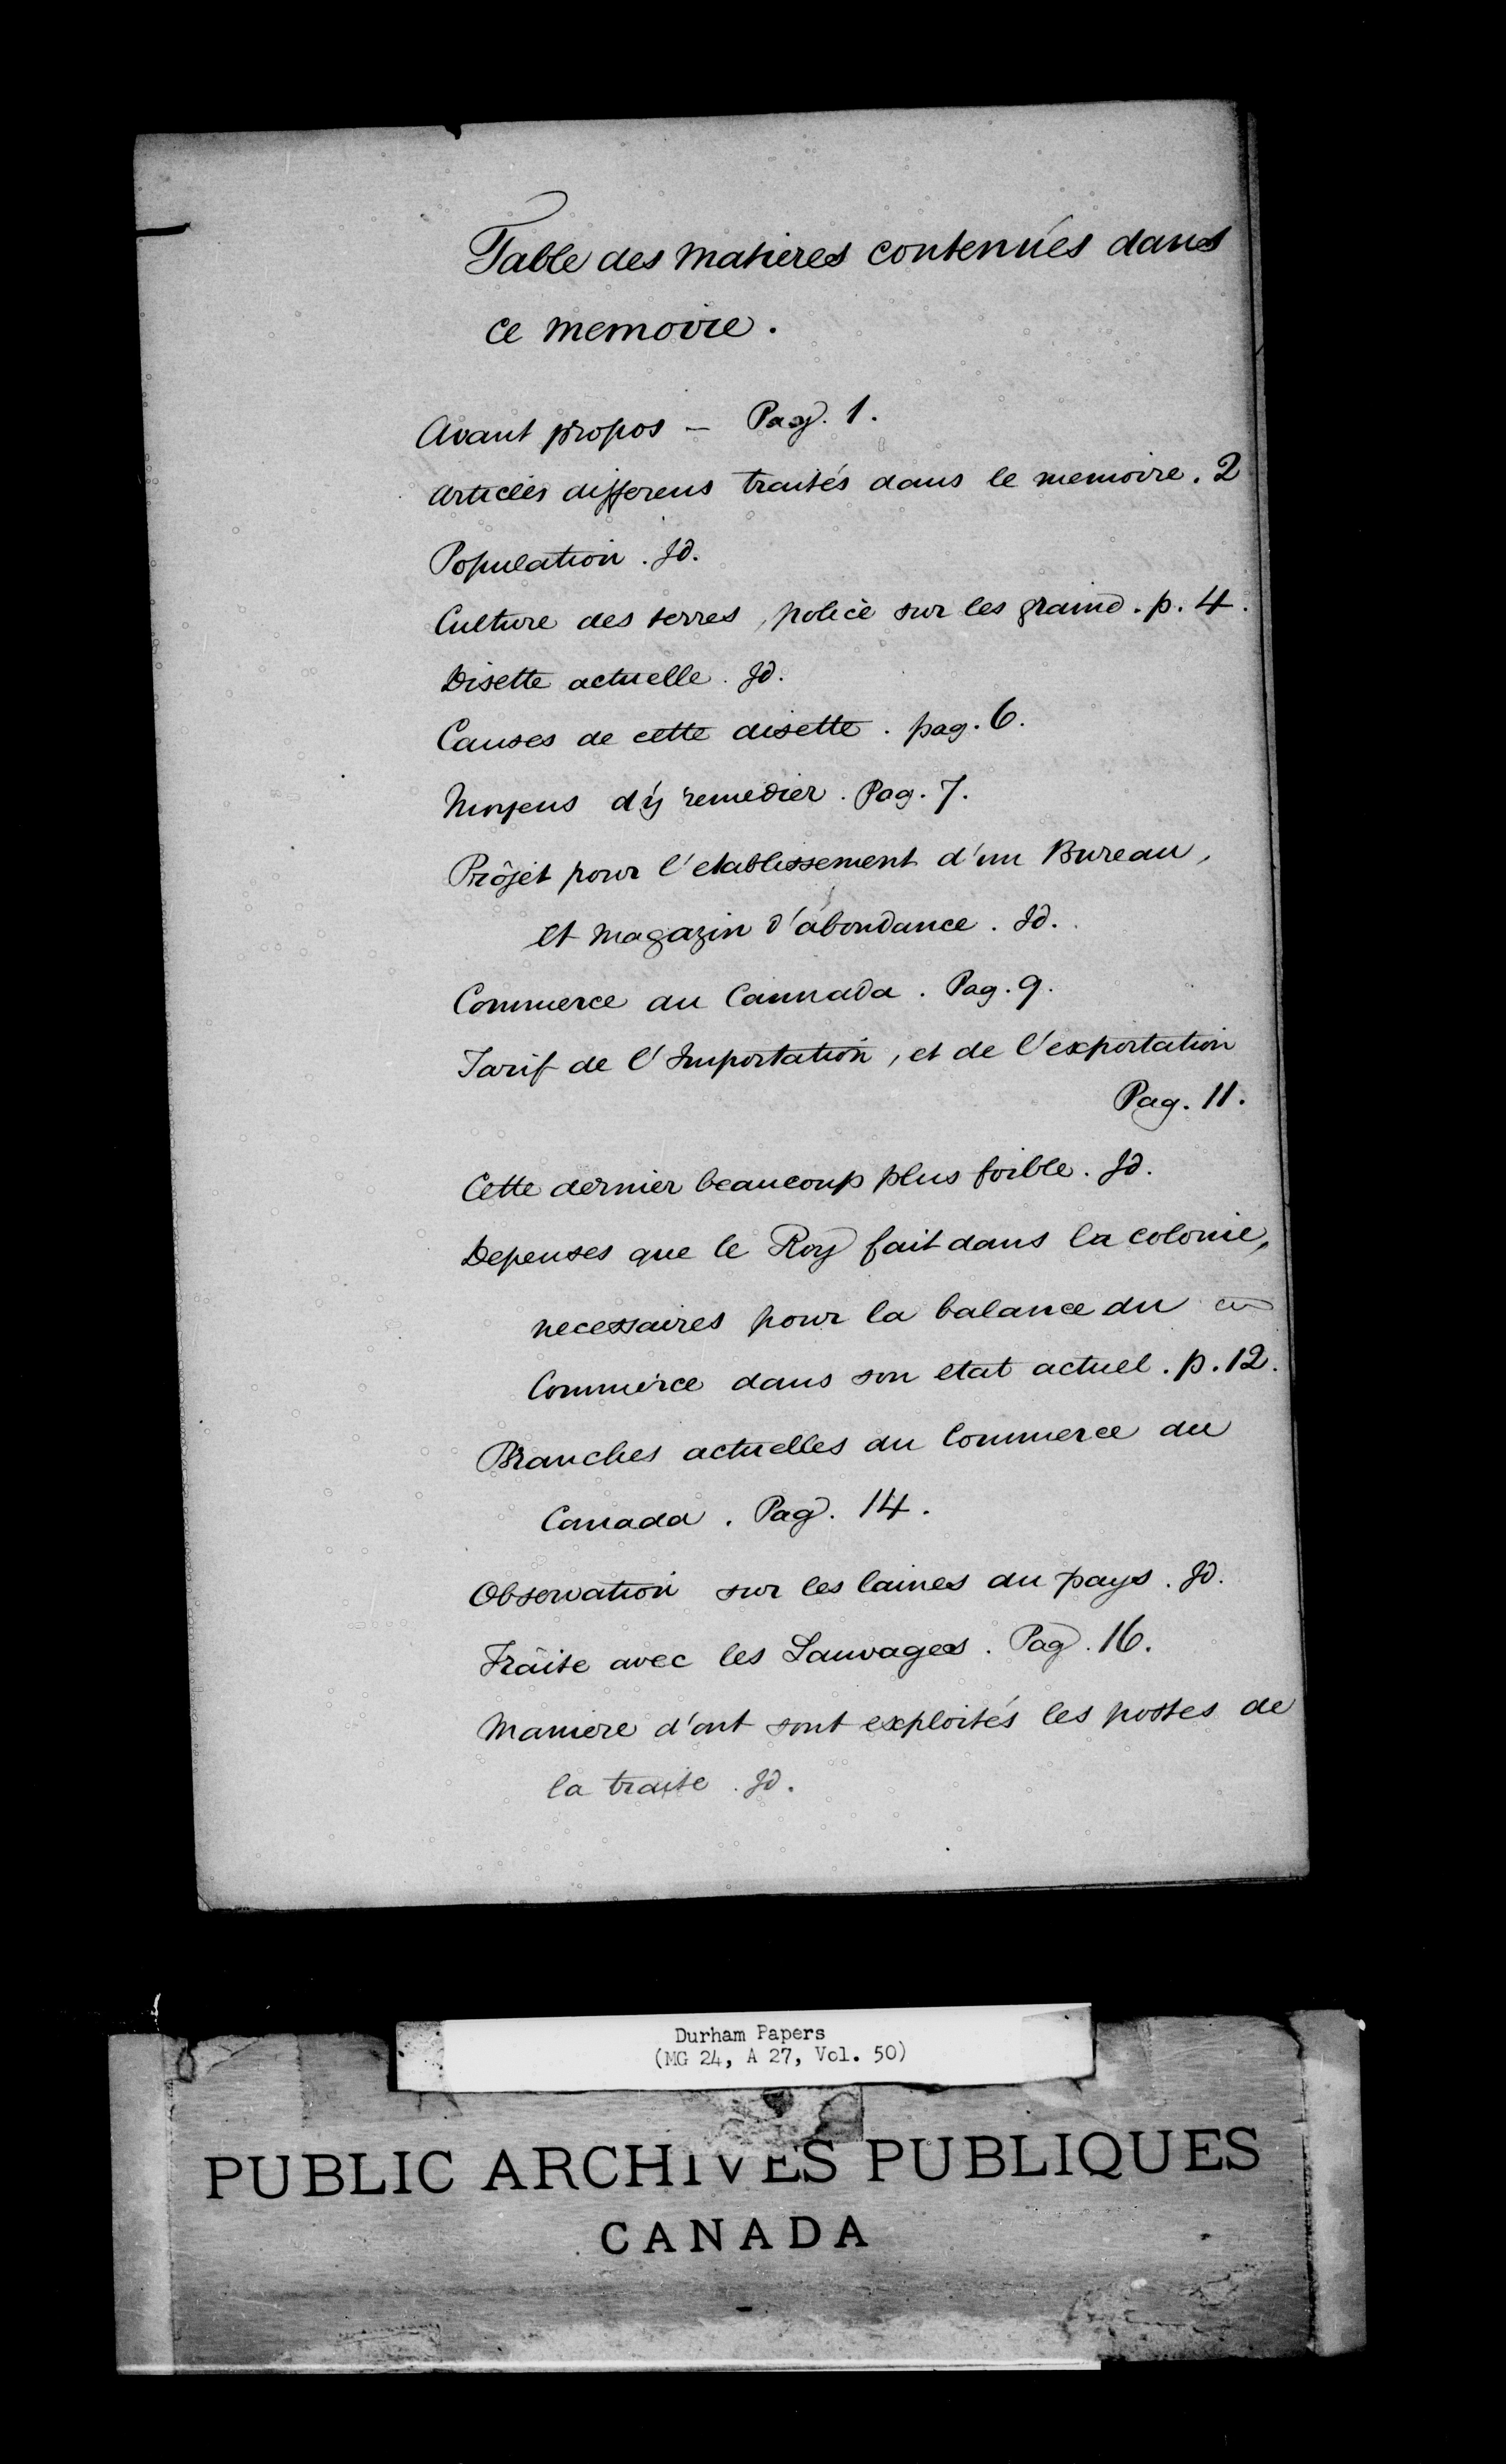 Table des matieres contenües dans
ce memoire.
Avant propos – Pag. 1.
Articles differens traités dans le memoire. 2
Population. Id.
Culture des terres, police sur les grains. p. 4.
Disette actuelle. Id.
Causes de cette disette. pag. 6.
Moyens d'y remedier. Pag. 7.
Projet pour l'etablissement d'un Bureau,
et magazin d'abondance. Id.
Commerce au Cannada. Pag. 9.
Tarif de l'Importation, et de l'exportation
Pag. 11.
Cette dernier beaucoup plus foible. Id.
Depenses que le Roy fait dans la colonie,
necessaires pour la balance du
Commerce dans son etat actuel. p. 12.
Branches actuelles du Commerce du
Canada. Pag. 14.
Observation sur les laines du pays. Id.
Traite avec les Sauvages. Pag. 16.
Maniere d'ont sont exploités les postes de
la traite. Id.
Durham Papers
(MG 24, A 27, Vol. 50)
PUBLIC ARCHIVES PUBLIQUES
CANADA